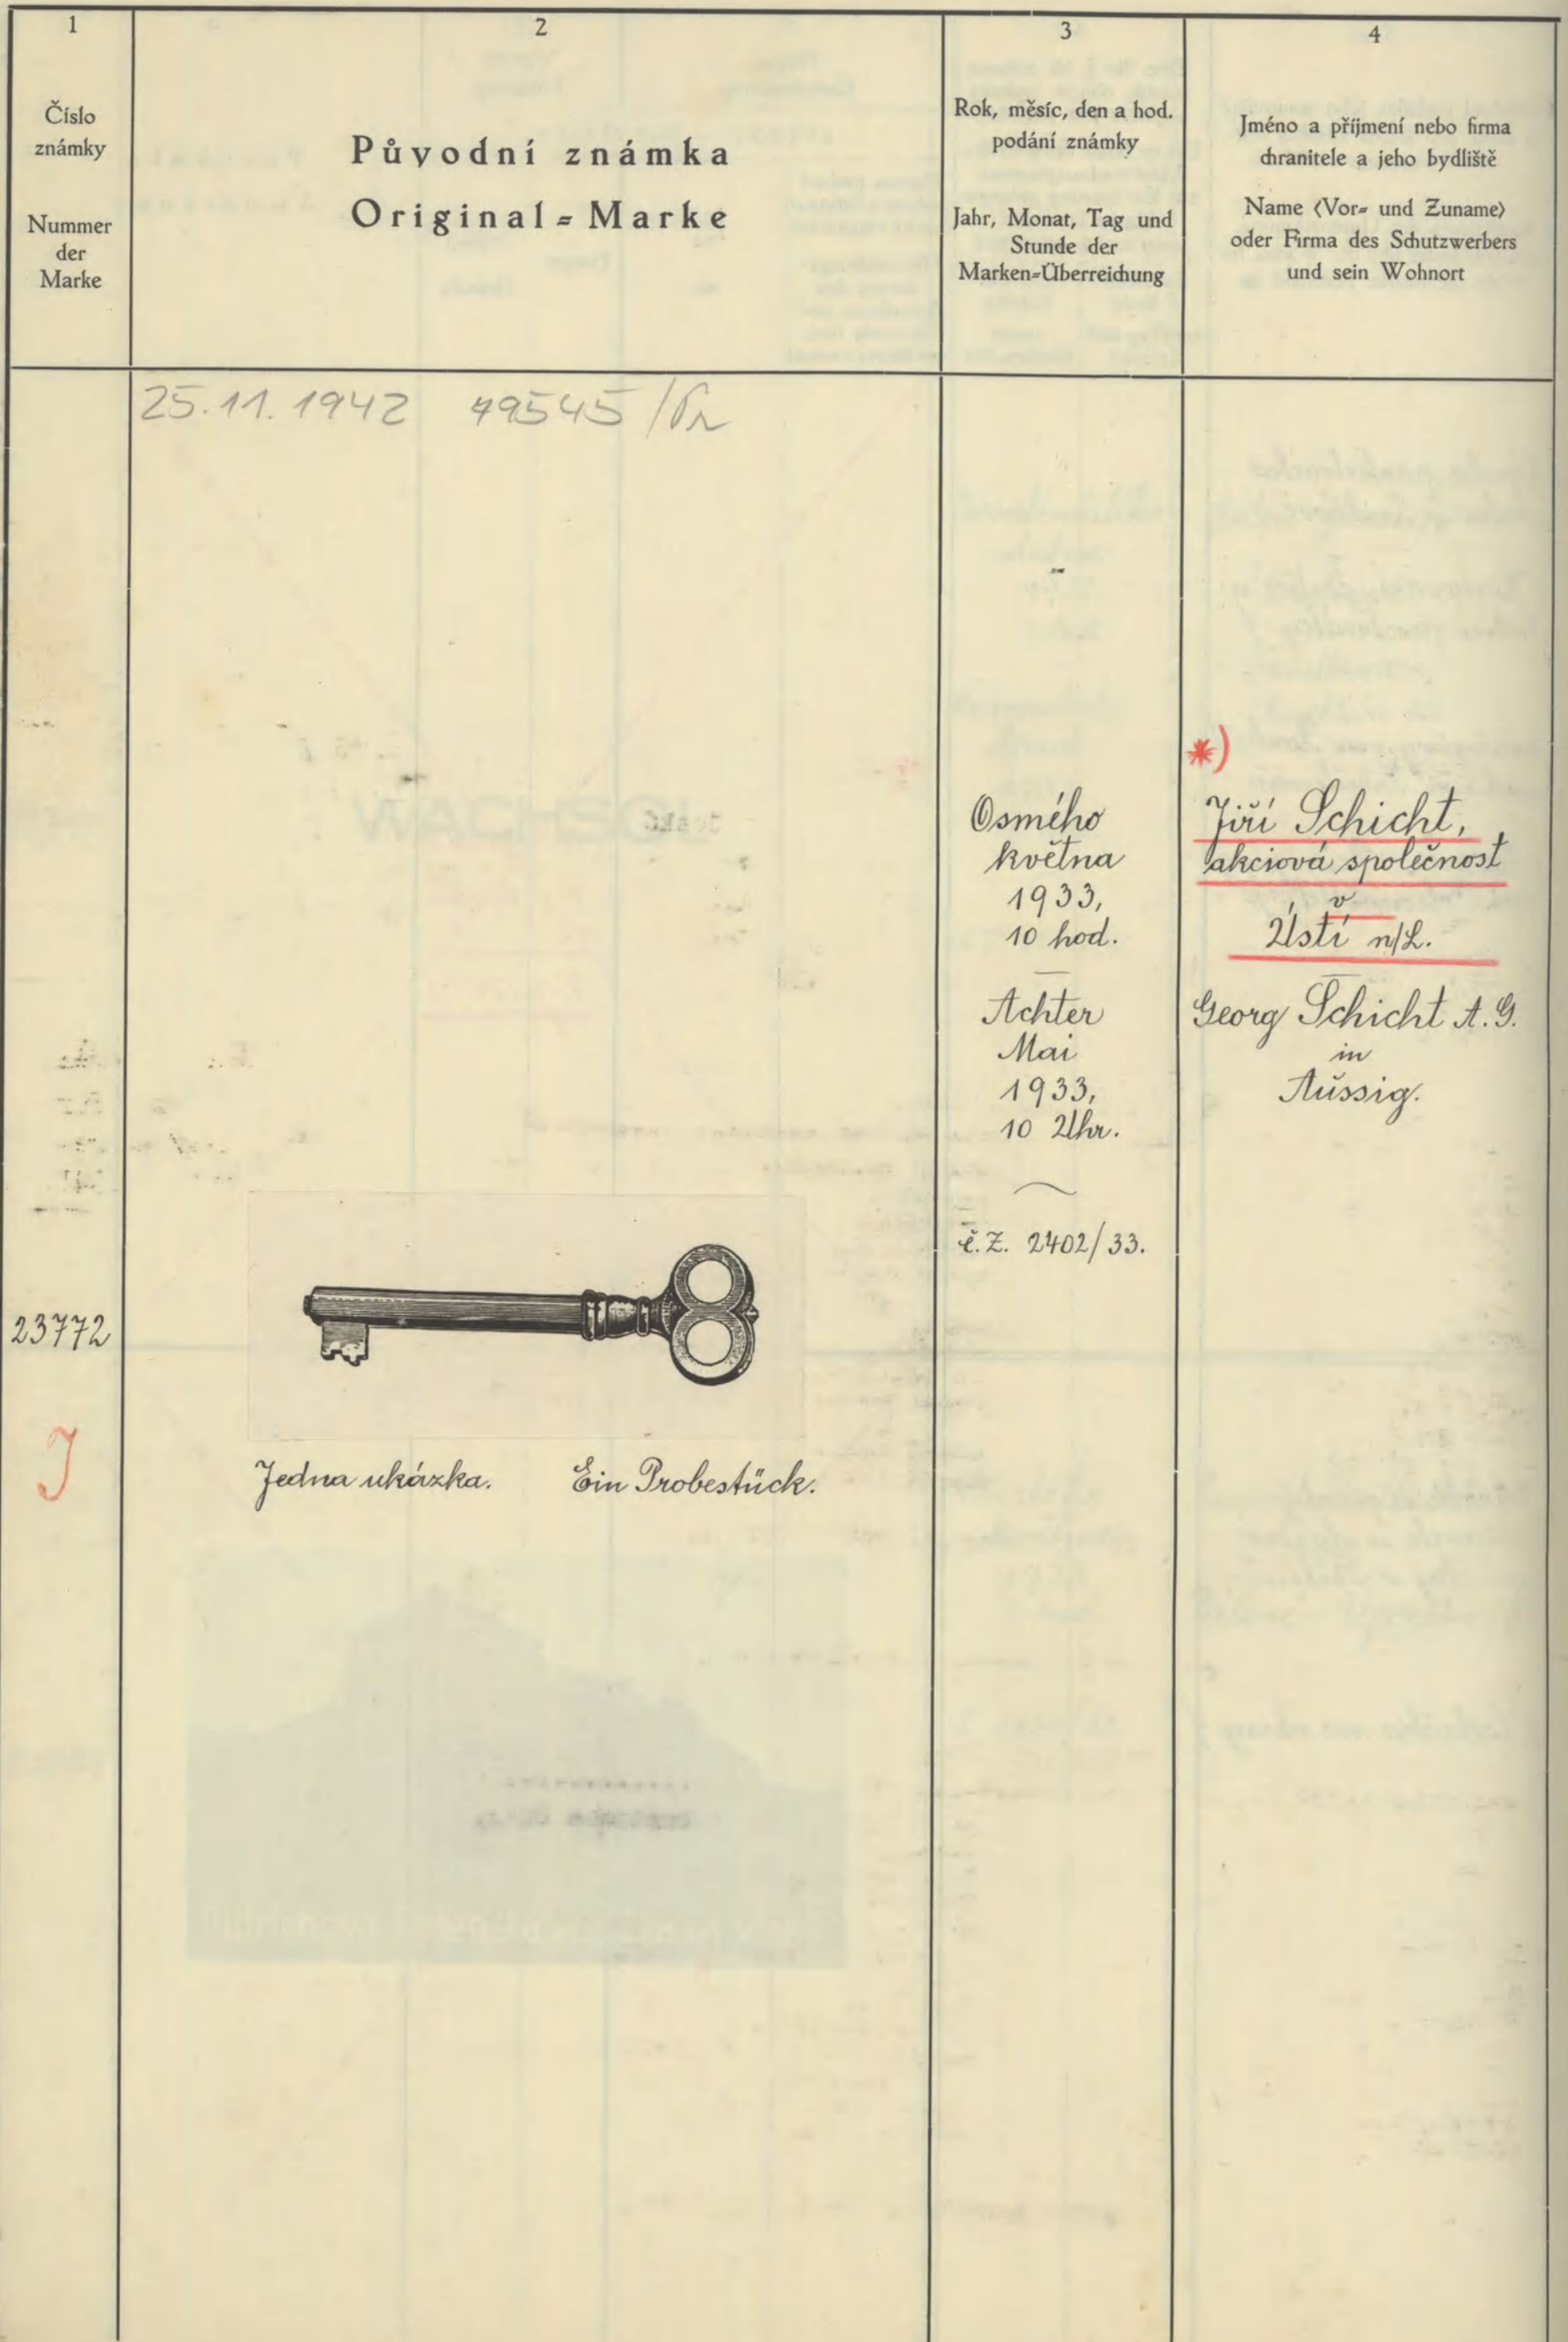 1
Číslo
známky
Nummer
der
Marke
2
Původní známka
Original-Marke
3
Rok, měsíc, den a hod.
podání známky
Jahr, Monat, Tag und
Stunde der
Marken-Überreichung
4
Jméno a příjmení nebo firma
chranitele a jeho bydliště
Name (Vor- und Zuname)
oder Firma des Schutzwerbers
und sein Wohnort
25.11.1942 79545
23772
J
Jedna ukázka. Ein Probestück.
Osmého
května
1933,
10 hod.
Achter
Mai
1933,
10 Uhr.
č.Z. 2402/33.
*)
Jiří Schicht,
akciová společnost
v
Ústí n/L.
Georg Schicht A.G.
in
Aussig.